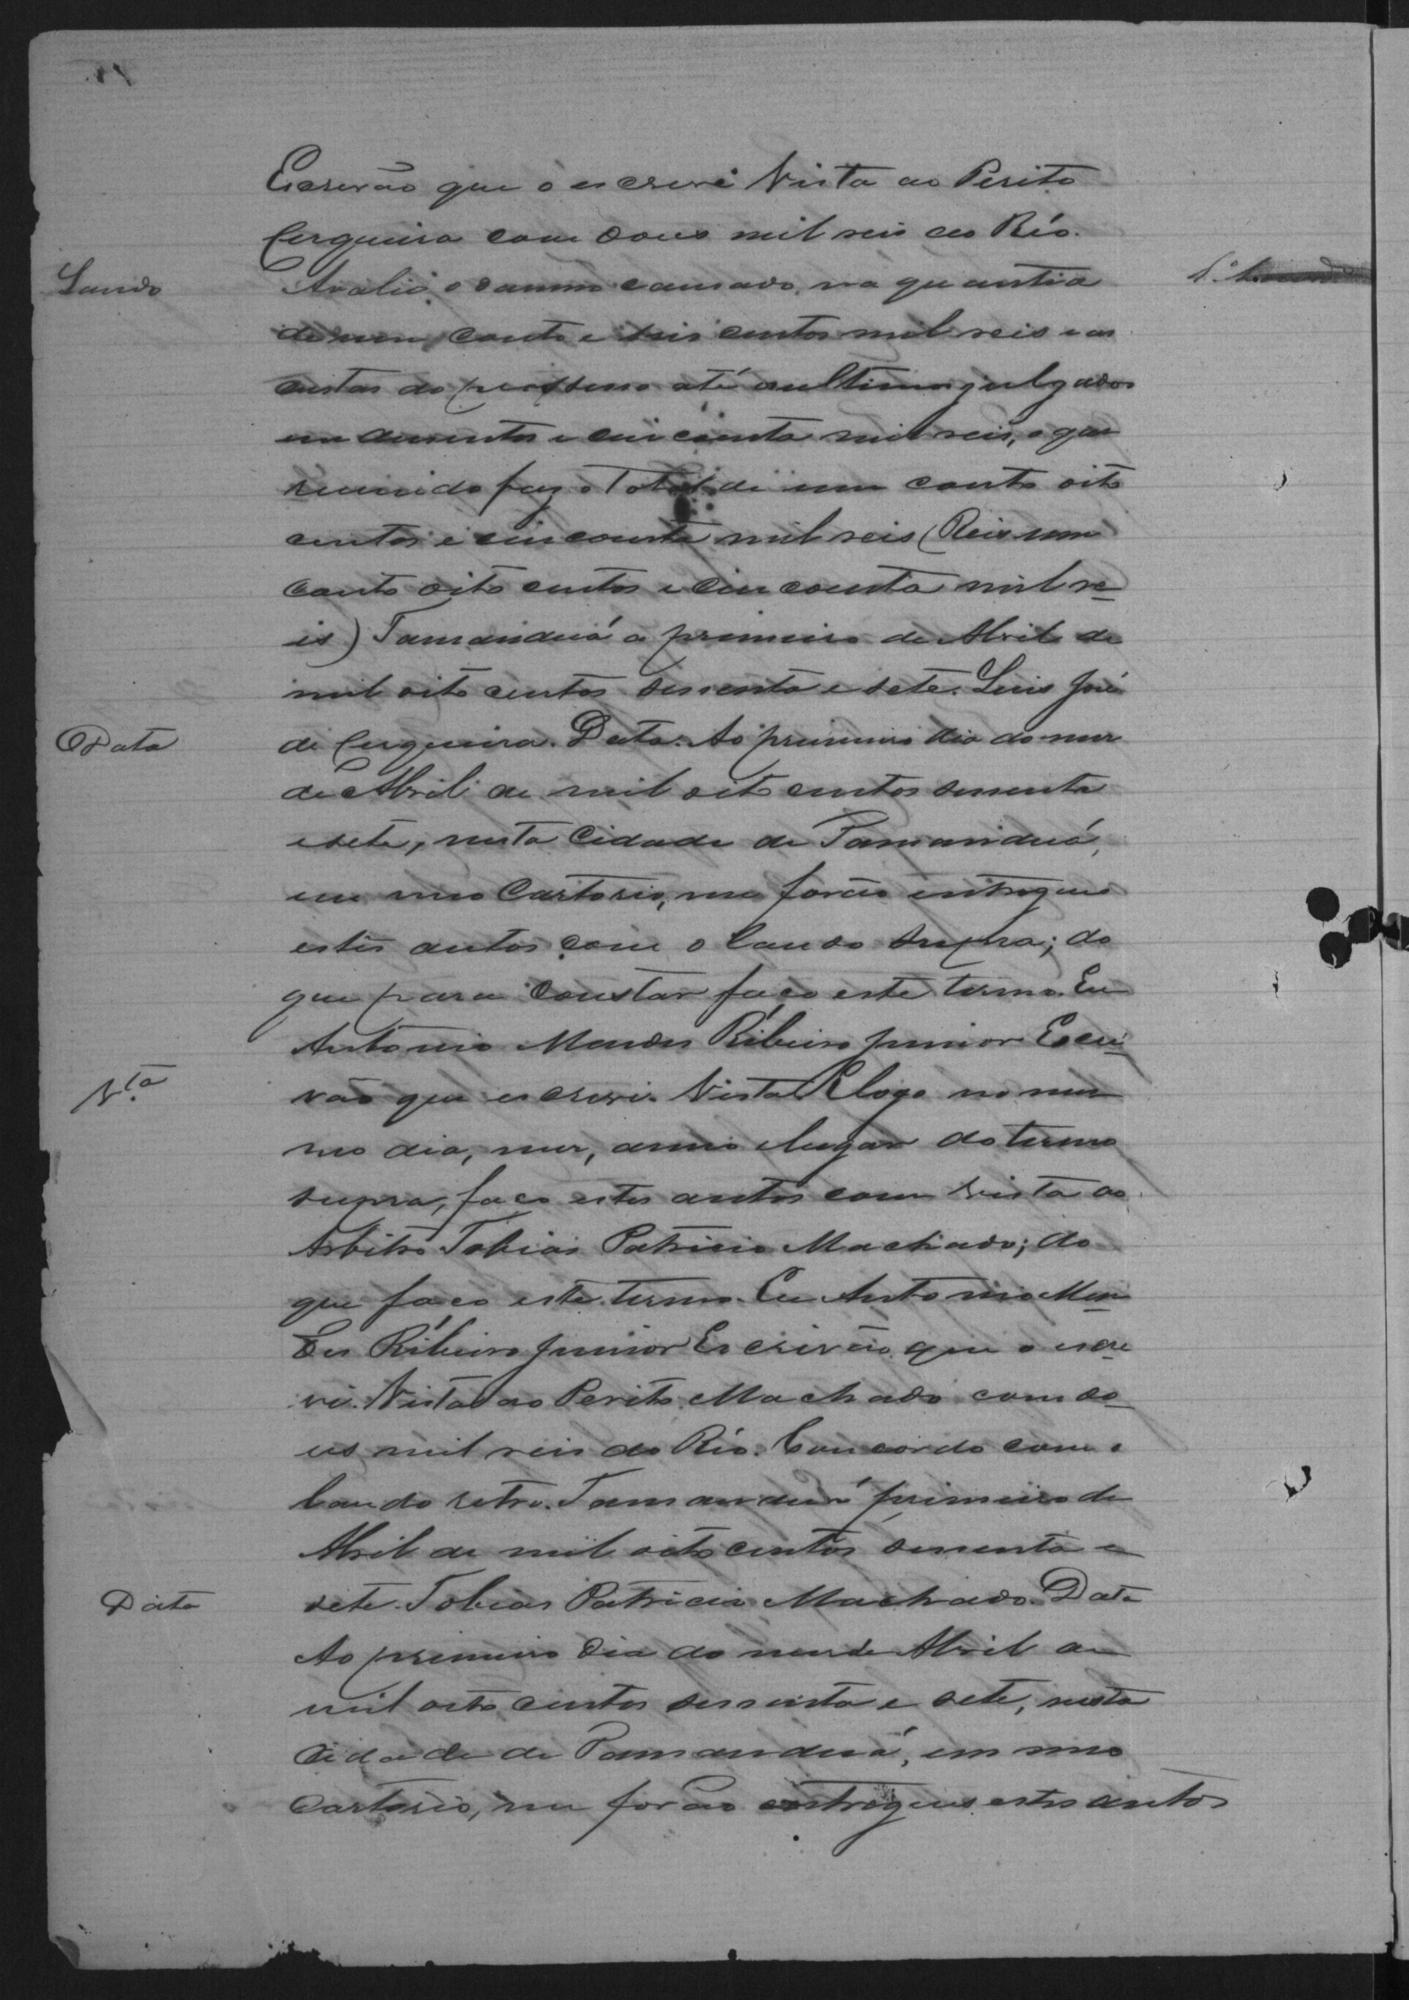 Escrivão que o escrevi Vista ao Perito
Cerqueira com dous mil reis do Rio.
Laudo
Avalio o damno causado, na quantia
de um conto e seis centos mil reis e as
custas do processo até a ultima julgados
em duzentos e cincoenta mil reis, o que
reunido faz o Total de um conto oito
centos e cincoenta mil reis (Reis um
conto oito centos e cincoenta mil re-
is) Tamanduá a primeiro de Abril de
mil oito centos sessenta e sete. Luis José
Data
de Cerqueira. Data. Ao primeiro dia do mez
de Abril de mil oito centos sessenta
e sete, nesta Cidade de Tamanduá,
em meo Cartorio, me forão entregues
estes autos com o laudo supra; do
que para constar faço este termo. Eu
Antonio Mendes Ribeiro Junior Escri-
Vta
vão que escrevi. Vista E logo no mes-
mo dia, mez, anno e lugar do termo
supra, faço estes autos com vista ao
Arbitro Tobias Patricio Machado; do
que faço este termo. Eu Antonio Men-
des Ribeiro Junior Escrivão que o escre-
vi. Vista ao Perito Machado com do-
us mil reis do Rio. Concordo com o
laudo retro. Tamanduá primeiro de
Abril de mil oito centos sessenta e
Data
sete. Tobias Patricio Machado. Data
Ao primeiro dia do mez de Abril de
mil oito centos sessenta e sete, nesta
Cidade de Tamanduá, em meo
Cartorio, me forão entregues estes autos